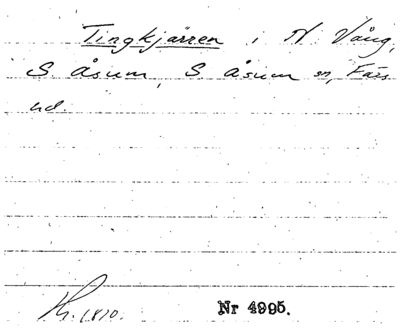 Tingkjärren i N. Vång,
S. Åsum, S. Åsum sn, Färs
hd.
Kr. 1810.
Nr 4995.